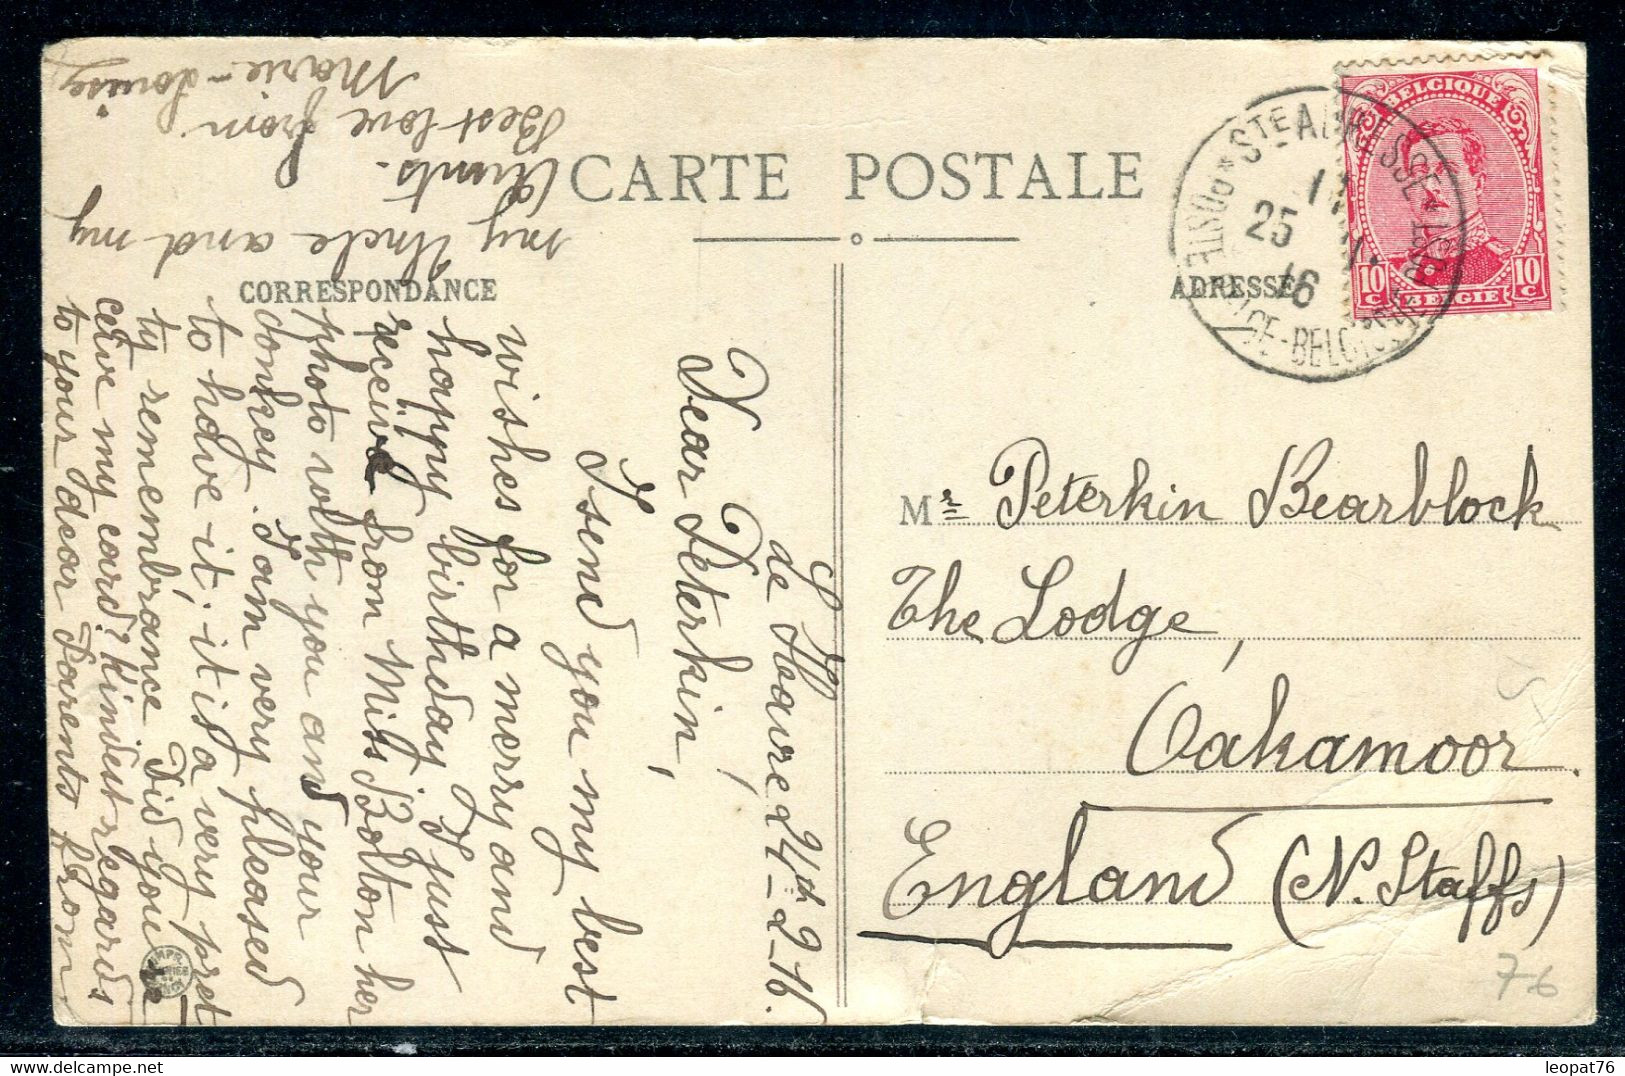 CARTE POSTALE
CORRESPONDANCE
ADRESSE
BELGIQUE
10 C
10 C
BELGIE
STE ADRESSE
25
16
Le Havre, 24th-2-16.
Dear Peterkin,
I send you my best
wishes for a merry and
happy birthday. I just
receive from Miss Bolton her
photo with you and your
donkey. I am very pleased
to have it, it is a very pret
ty remembrance. Did you re
ceive my card? Kindest regards
to your dear Parents from
my Uncle and my
Aunts.
Best love from
Marie-Louise
Mr Peterkin Bearblock
The Lodge,
Oakamoor.
England (N. Staffs)
76
leopat76